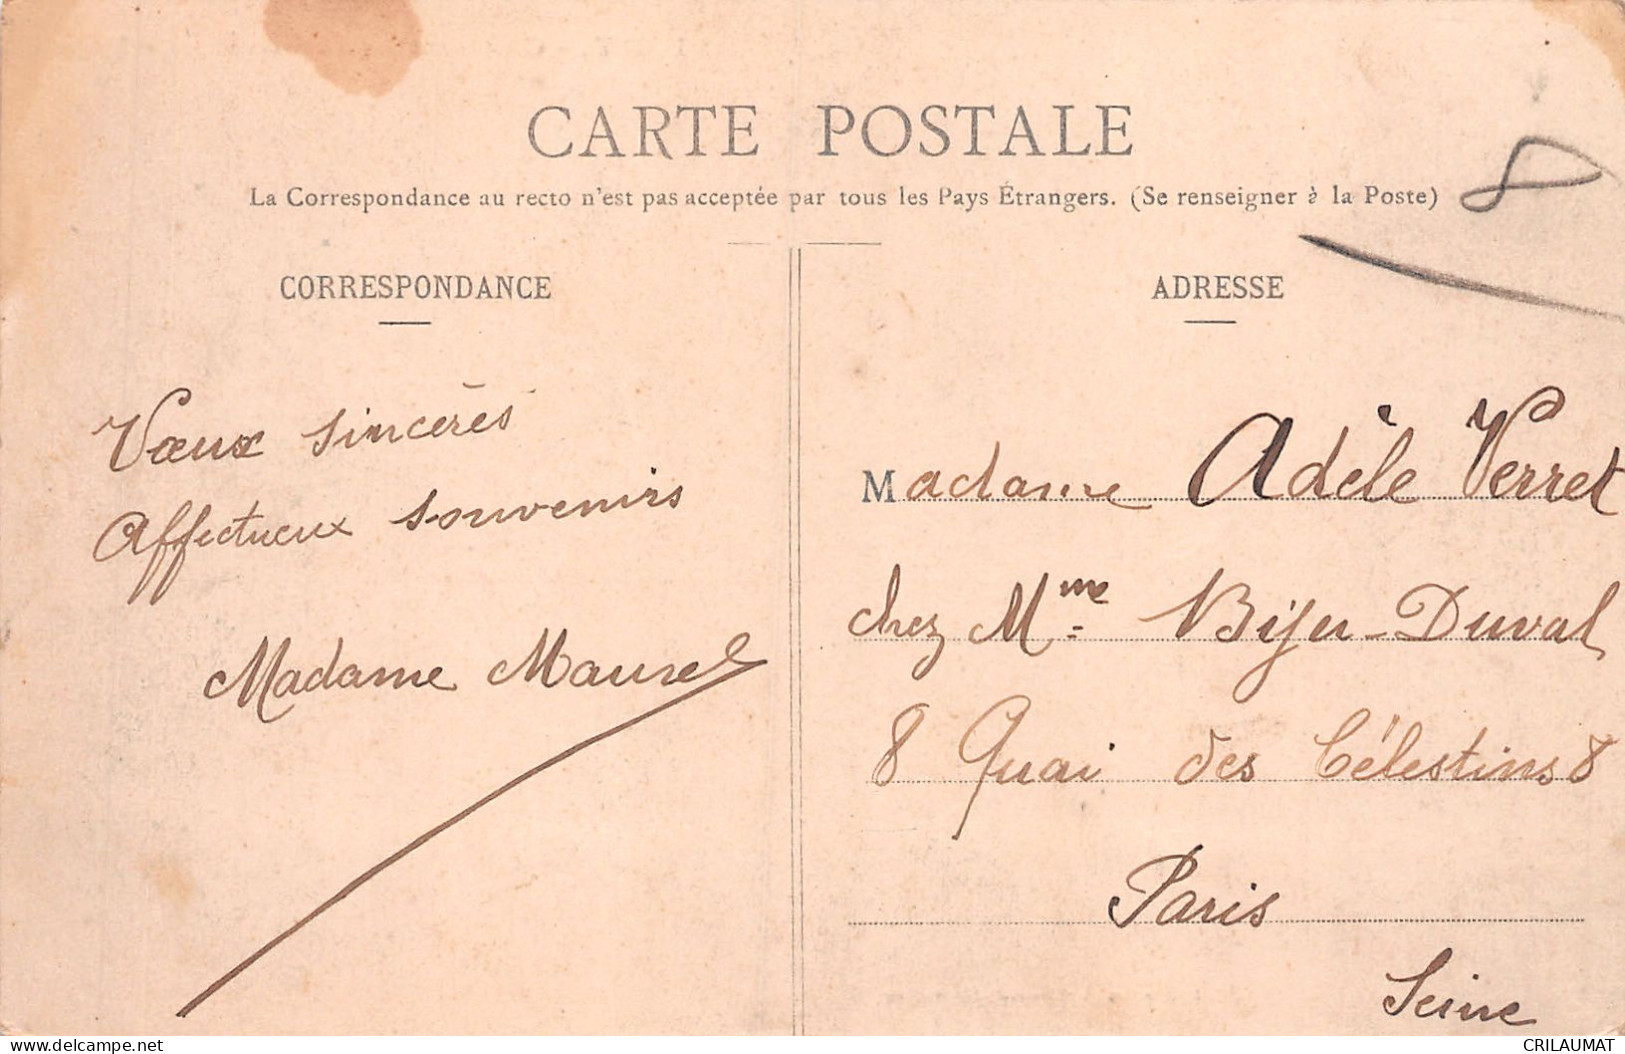 CARTE POSTALE
La Correspondance au recto n'est pas acceptée par tous les Pays Étrangers. (Se renseigner à la Poste)
8
CORRESPONDANCE
Vœux sincères
Affectueux souvenirs
Madame Maurel
ADRESSE
Madame Adèle Verret
chez Mme Biju-Duval
8 Quai des Célestins 8
Paris
Seine
delcampe.net
CRILAUMAT